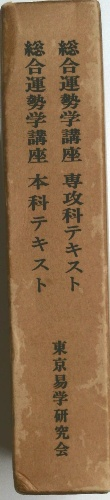 総合運勢学講座 専攻科テキスト
総合運勢学講座 本科テキスト
東京易学研究会